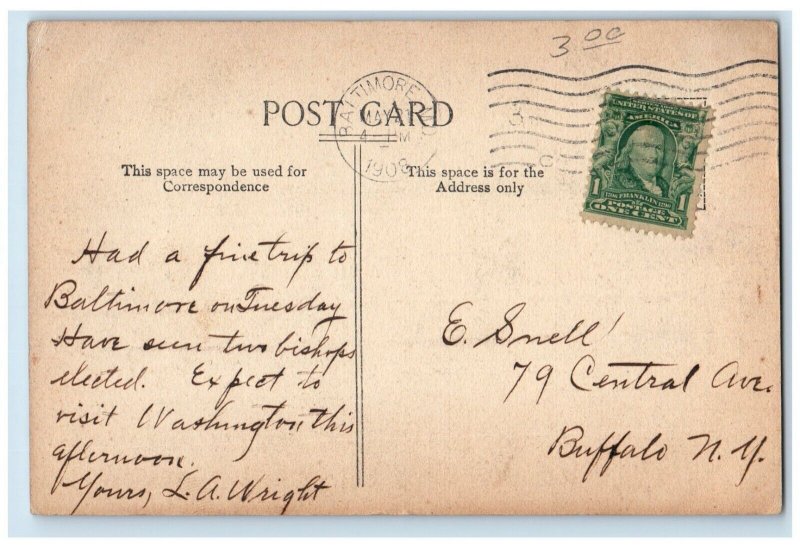 3 00
BALTIMORE, MD.
MAY
4 PM
1908
POST CARD
This space may be used for
Correspondence
This space is for the
Address only
UNITED STATES OF
AMERICA
1 FRANKLIN 1
POSTAGE
ONE CENT
Had a fine trip to
Baltimore on Tuesday
Have seen two bishops
elected. Expect to
visit Washington this
afternoon.
Yours, L. A. Wright
E. Snell
79 Central Ave.
Buffalo N. Y.